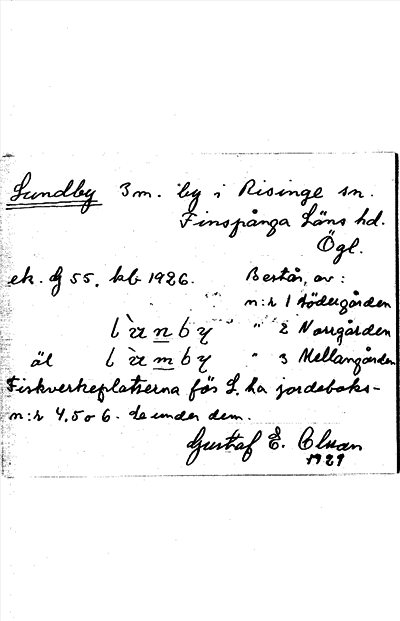 Lundby 3 m. by i Risinge sn.
Finspånga Läns hd.
Ögl.
ek. bl 55. kbl 1926. Består av:
n:r 1 Södergården
l ὰ n b y " 2 Norrgården
äl l ὰ m b y " 3 Mellangården
Fiskverkeplatserna för L. ha jordeboks-
n:r 4,5 o 6. Se under dem.
Gustaf E.
1929